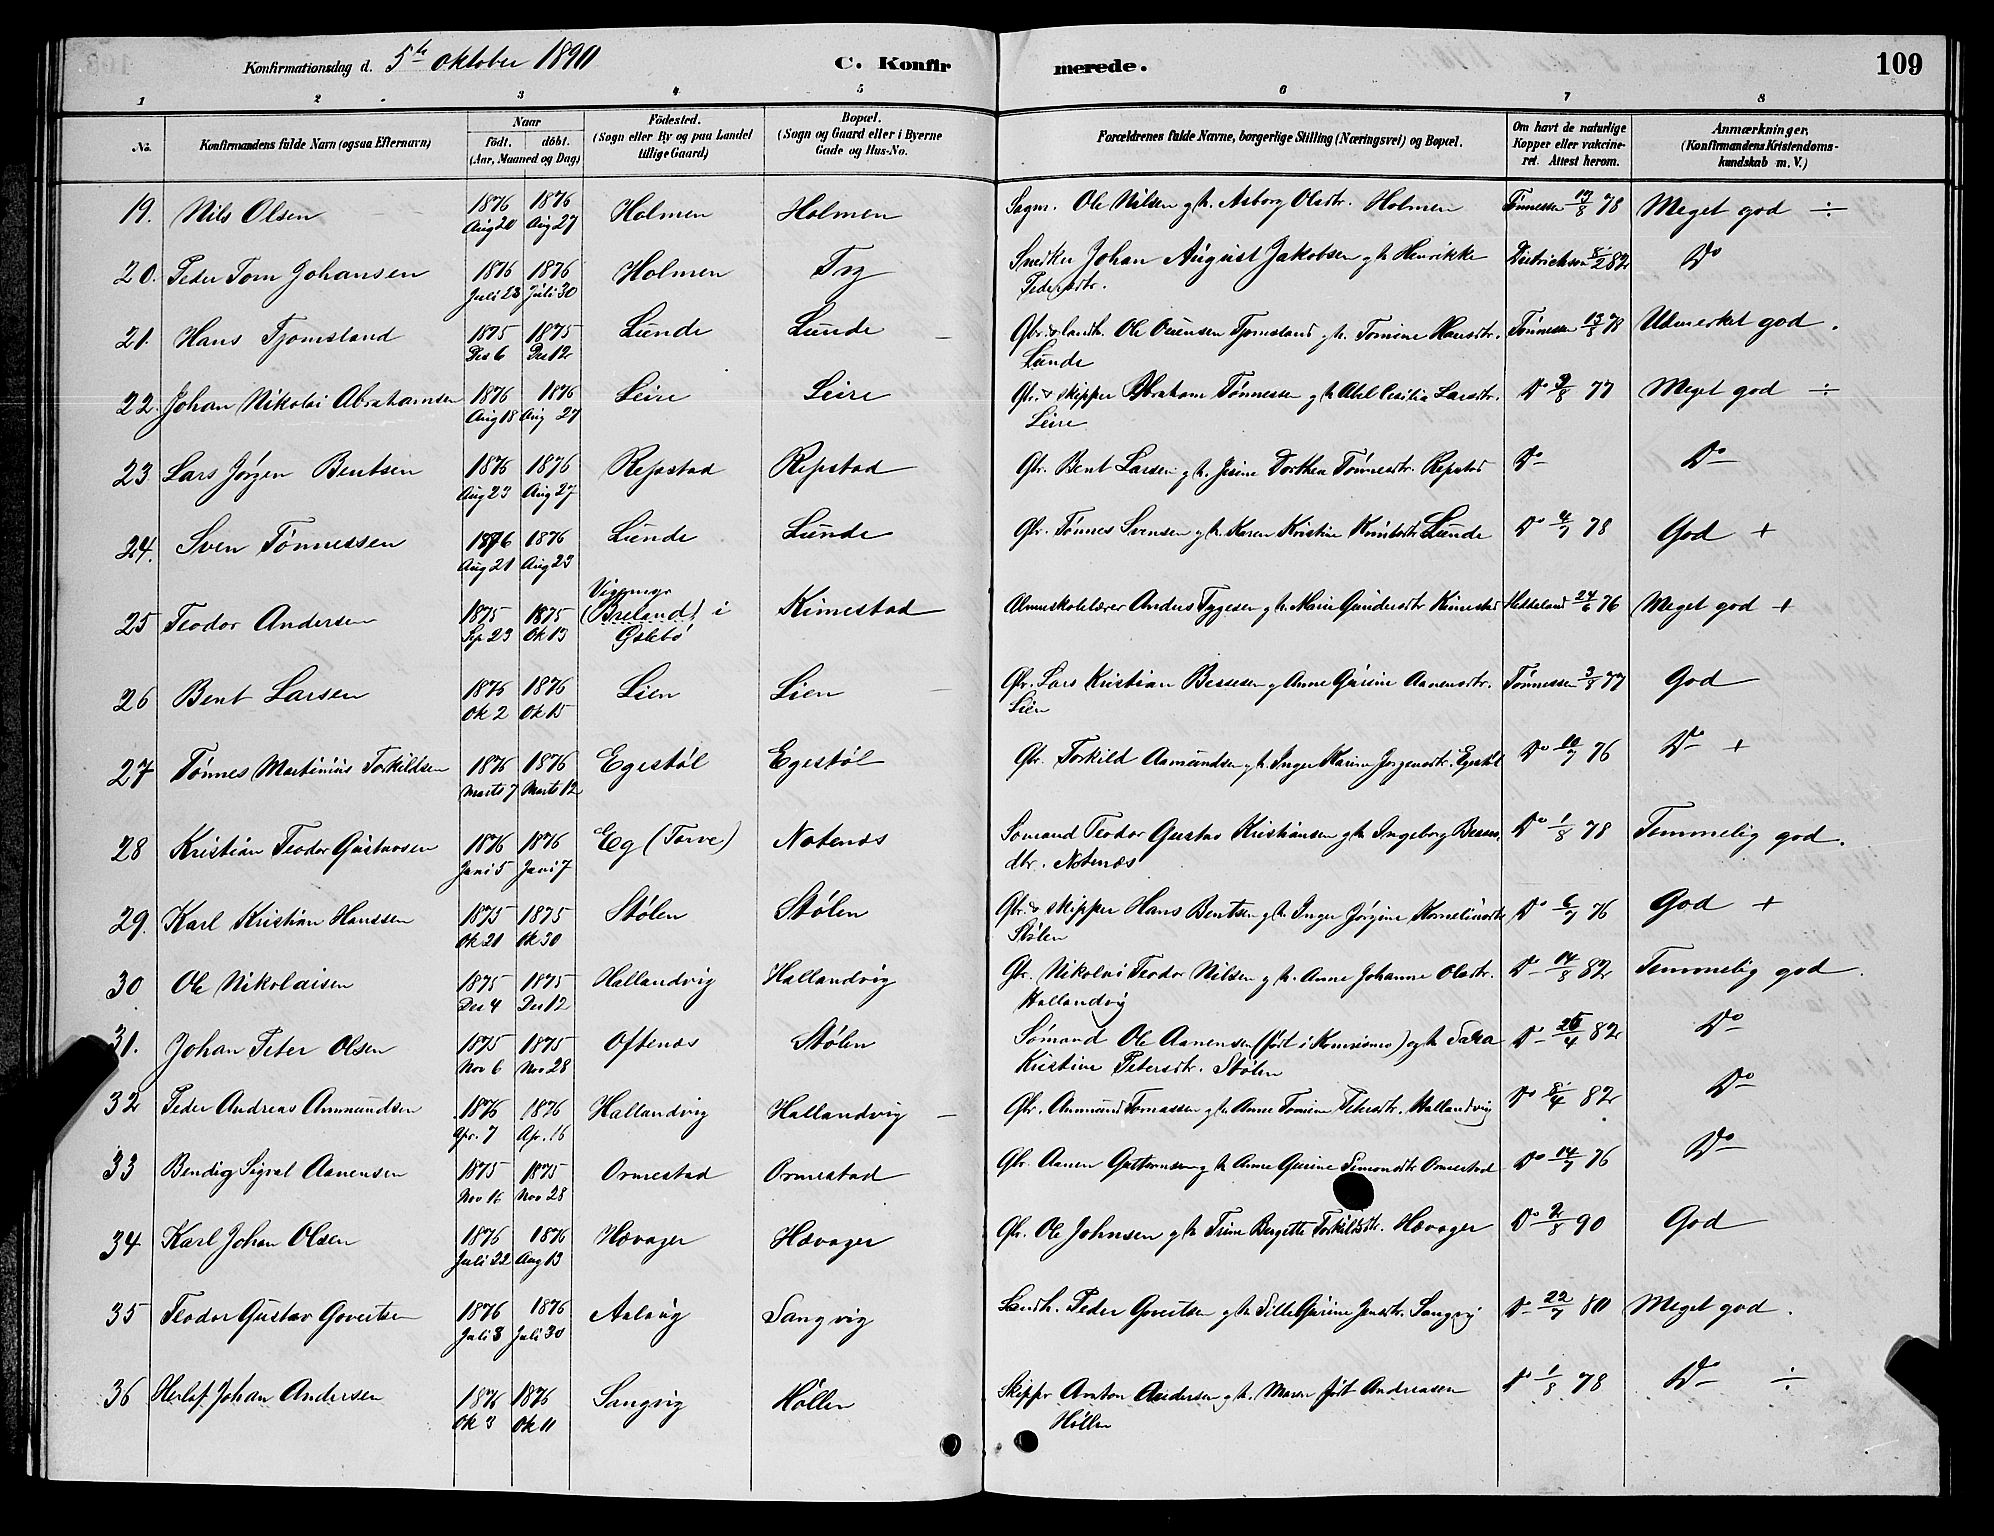 Konfirmationsdag d. 5te Oktober 1890
C. Konfirmerede.
109
1 2 3 4 5 6 7 8
No. Konfirmandens fulde Navn (ogsaa Efternavn) Naar født. døbt. (Aar, Maaned og Dag) Fødested. (Sogn eller By og paa Landet tillige Gaard) Bopæl. (Sogn og Gaard eller i Byerne Gade og Hus-No. Forældrenes fulde Navne, borgerlige Stilling (Næringsvei) og Bopæl. Om havt de naturlige Kopper eller vakcineret. Attest herom. Anmærkninger. (Konfirmandens Kristendomskundskab m. V.)
19. Nils Olsen 1876 Aug 20 1876 Aug 27 Holmen Holmen Sagm. Ole Nilsen g h. Asborg Olsdtr. Holmen Tønnessen 17/8 78 Meget god ÷
20. Peder Tom Johansen 1876 Juli 23 1876 Juli 30 Holmen Try Snedker Johan August Jakobsen g h Henrikke
Pedersdtr. Dietrichson 8/2 82 Do
21. Hans Tjomsland 1875 Des 6 1875 Des 12 Lunde Lunde Gbr. & landh. Ole Ouensen Tjomsland g h. Tomine Hansdtr.
Lunde Tønnessen 13/8 78 Udmerket god.
22. Johan Nikolai Abrahamsen 1876 Aug 18 1876 Aug 27 Leire Leire Gbr. & skipper Abraham Tønnessen g h Abel Cesilia Larsdtr.
Leire Do 9/8 77 Meget god ÷
23 Lars Jørgen Bentsen 1876 Aug 23 1876 Aug 27 Repstad Repstad Gbr. Bent Larsen g h. Jesine Dorthea Tønnesdtr. Repstad Do Do
24. Sven Tønnessen 1876 Aug 21 1876 Aug 23 Lunde Lunde Gbr. Tønnes Svensen g h. Karen Kristine Knudsdtr Lunde Do 4/7 78 God +
25 Teodor Andersen 1875 Sep 23 1875 Ok 13 Vigemyr
(Breland) i
Øslebø Kimestad Almueskolelærer Anders Tygesen g h. Marie Gundersdtr Kimestad Heddeland 24/6 76 Meget god +
26 Bent Larsen 1876 Ok 2 1876 Ok 15 Lien Lien Gbr. Lars Kristian Bessesen g Anne Gurine Aanensdtr.
Lien Tønnessen 3/8 77 God
27 Tønnes Martinius Torkildsen 1876 Marts 7 1876 Marts 12 Egestøl Egestøl Gbr. Torkild Aamundsen g h. Inger Karine Jørgensdtr. Egestøl Do 10/7 76 Do +
28 Kristian Teodor Gustavsen 1876 Jani 5 1876 Jani 7 Eg (Torve) Notenæs Sømand Teodor Gustav Kristiansen g h Ingeborg Besses
dtr. Notenæs Do 1/8 78 Temmelig god.
29. Karl Kristian Hanssen 1875 Ok 21 1875 Ok 30 Stølen Stølen Gbr. & skipper Hans Bentsen g h Inger Jørgine Korneliusdtr
Stølen Do 6/7 76 God +
30 Ole Nikolaisen 1875 Des 4 1875 Des 12 Hallandvig Hallandvig Gbr. Nikolai Teodor Nilsen g h. Anne Johanne Olsdtr.
Hallandvig Do 14/8 82 Temmelig god.
31. Johan Peter Olsen 1875 Nov 6 1875 Nov 28 Oftenæs Stølen Sømand Ole Aanensen (født i Komisness) g h Sara
Kristine Petersdtr. Stølen Do 25/4 82 Do
32 Peder Andreas Ammundsen 1876 Apr. 7 1876 Apr. 16 Hallandvig Hallandvig Gbr. Ammund Tomassen g h Anne Tomine Pedersdtr. Hallandvig Do 8/4 82 Do
33 Bendig Sigval Aanensen 1875 Nov 16 1875 Nov 28 Ormestad Ormestad Gbr. Aanen Guttormsen g h Anne Gurine Simonsdtr Ormestad Do 14/7 76 Do
34. Karl Johan Olsen 1876 Juli 22 1876 Aug 13 Hævager Hævager Gbr. Ole Johnsen g h Trine Bergitte Torkildsdtr. Hævager Do 2/8 90 God
35 Teodor Gustav Govertsen 1876 Juli 3 1876 Juli 30 Aalvig Sangvig Landh. Peder Govertsen g h Sille Gurine Jensdtr. Sangvig Do 22/7 80 Meget god.
36 Herlof Johan Andersen 1876 Ok 3 1876 Ok 11 Sangvig Høllen Skippr Anton Andersen g h. Maren født Andreasen
Høllen Do 1/8 78 Do ÷